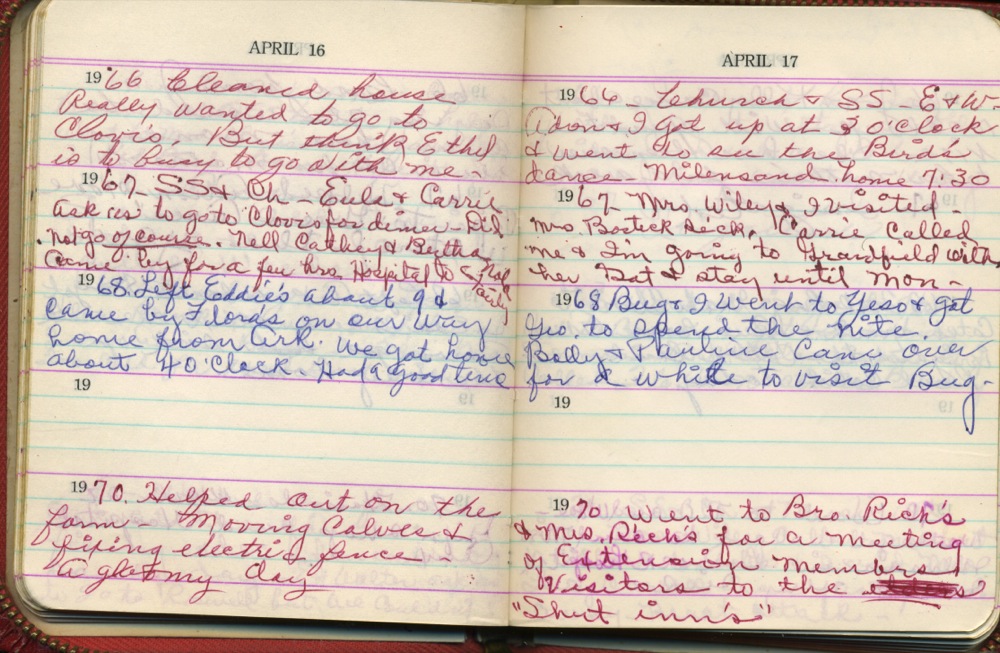 APRIL 16
1966 Cleaned house
Really wanted to go to
Clovis. But think Ethel
is to busy to go with me -
1967 - SS & Ch - Eula & Carrie
ask us to go to Clovis for dinner - Did
not go of course. Nell Cathey & Bertha
came by for a few hrs. Hospital to see
1968. Left Eddie's about 9 &
came by Floras on our way
home from Ark. We got home
about 4 O'Clock. Had a good time
19
1970. Helped out on the
farm - Moving Calves &
fixing electric fence -
a gloomy day
APRIL 17
1966 - Church & SS - E & W -
Adon & I got up at 3 O'Clock
& went to see the Birds
dance. Milensand home 7:30
1967 - Mrs Wiley & I visited -
Mrs. Bostick sick. Carrie called
me & I'm going to Grandfield with
her Sat & stay until Mon -
1968 Bug & I went to Yeso & got
Geo. to spend the nite.
Body & Pauline Came over
for a while to visit Bug -
19
1970 Went to Bro. Rich's
& Mrs. Rich's for a meeting
of Extension members
Visitors to the
"Shut inn's"